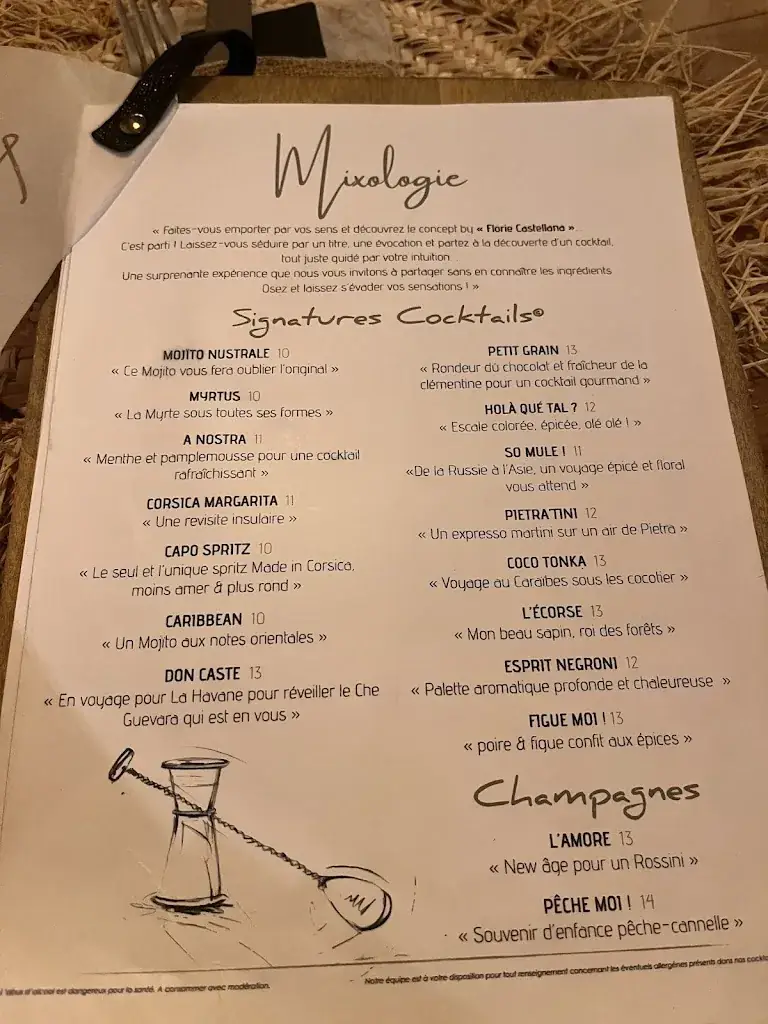 Mixologie
« Faites-vous emporter par vos sens et découvrez le concept by « Florie Castellana »
C'est parti ! Laissez-vous séduire par un titre, une évocation et partez à la découverte d'un cocktail,
tout juste guidé par votre intuition.
Une surprenante expérience que nous vous invitons à partager sans en connaître les ingrédients
Osez et laissez s'évader vos sensations ! »
Signatures Cocktails©
MOJITO NUSTRALE 10
« Ce Mojito vous fera oublier l'original »
MYRTUS 10
« La Myrte sous toutes ses formes »
A NOSTRA 11
« Menthe et pamplemousse pour une cocktail
rafraîchissant »
CORSICA MARGARITA 11
« Une revisite insulaire »
CAPO SPRITZ 10
« Le seul et l'unique spritz Made in Corsica,
moins amer & plus rond »
CARIBBEAN 10
« Un Mojito aux notes orientales »
DON CASTE 13
« En voyage pour La Havane pour réveiller le Che
Guevara qui est en vous »
PETIT GRAIN 13
« Rondeur du chocolat et fraîcheur de la
clémentine pour un cocktail gourmand »
HOLÀ QUÉ TAL ? 12
« Escale colorée, épicée, olé olé ! »
SO MULE ! 11
«De la Russie à l'Asie, un voyage épicé et floral
vous attend »
PIETRA'TINI 12
« Un expresso martini sur un air de Pietra »
COCO TONKA 13
« Voyage au Caraïbes sous les cocotier »
L'ÉCORSE 13
« Mon beau sapin, roi des forêts »
ESPRIT NEGRONI 12
« Palette aromatique profonde et chaleureuse »
FIGUE MOI ! 13
« poire & figue confit aux épices »
Champagnes
L'AMORE 13
« New âge pour un Rossini »
PÊCHE MOI ! 14
« Souvenir d'enfance pêche-cannelle »
d'alcool est dangereux pour la santé. A consommer avec modération.
Notre équipe est à votre disposition pour tout renseignement concernant les éventuels allergènes présents dans nos